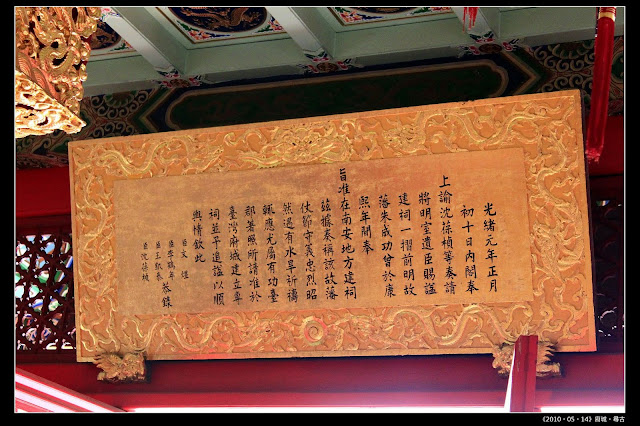 光緒元年正月
初十日內閣奉
上諭沈葆楨等奏請
將明室遺臣賜謚
建祠一摺前明故
藩朱成功曾於康
熙年間奉
旨准在南安地方建祠
茲據奏稱該故藩
仗節守義忠烈昭
然遇有水旱祈禱
輒應尤屬有功臺
郡著照所請准於
臺灣府城建立專
祠並予追謚以順
輿情欽此
臣文煜
臣李鶴年
臣王凱泰
臣沈葆楨
恭錄
《2010·05·14》府城·尋古